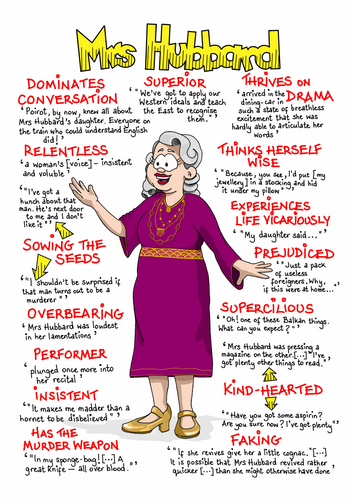 Mrs Hubbard
DOMINATES
CONVERSATION
'Poirot, by now, knew all about
Mrs Hubbard's daughter. Everyone on
the train who could understand English
did!'
RELENTLESS
'a woman's [voice] - insistent
and voluble'
'"I've got a
hunch about that
man. He's next door
to me and I don't
like it"'
SOWING THE
SEEDS
'"I shouldn't be surprised if
that man turns out to be a
murderer"'
OVERBEARING
'Mrs Hubbard was loudest
in her lamentations'
PERFORMER
'plunged once more into
her recital'
INSISTENT
'"It makes me madder than a
hornet to be disbelieved"'
HAS THE
MURDER WEAPON
'"In my sponge-bag! [...] A
great knife - all over blood."'
SUPERIOR
'"We've got to apply our
Western ideals and teach
the East to recognise
them"'
THRIVES ON
DRAMA
'arrived in the
dining-car in
such a state of breathless
excitement that she was
hardly able to articulate her
words'
THINKS HERSELF
WISE
'"Because, you see, I'd put [my
jewellery] in a stocking and hid
it under my pillow"'
EXPERIENCES
LIFE VICARIOUSLY
'"My daughter said..."'
PREJUDICED
'"Just a pack
of useless
foreigners. Why,
if this were at home..."'
SUPERCILIOUS
'"Oh! one of these Balkan things.
What can you expect?"'
'Mrs Hubbard was pressing a
magazine on the other. [...] "I've
got plenty other things to read."'
KIND-HEARTED
'"Have you got some aspirin?
Are you sure now? I've got plenty"'
FAKING
'"If she revives give her a little cognac."[...]
It is possible that Mrs Hubbard revived rather
quicker [...] than she might otherwise have done'